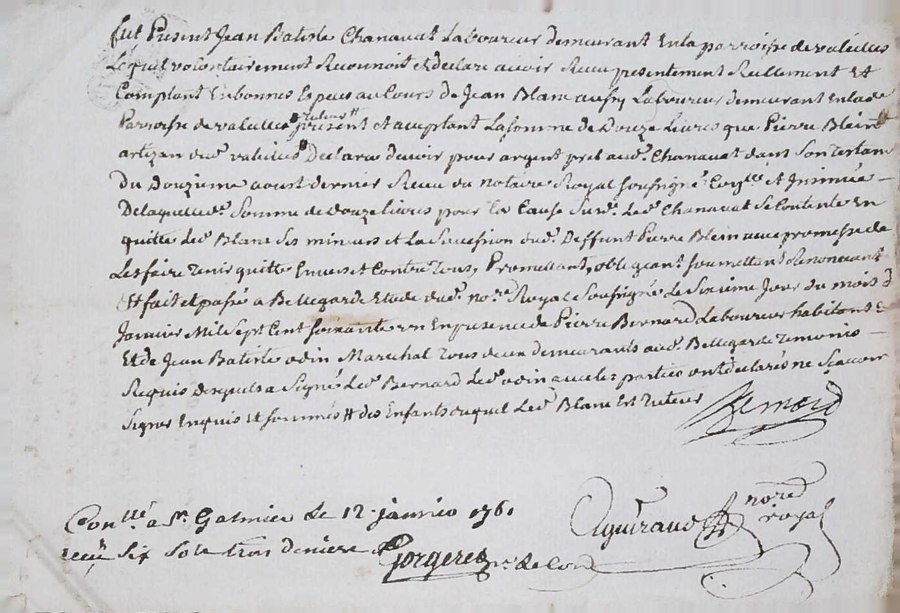 fut Present Jean Batiste Chanavat Laboureur demeurant En la parroisse de valeilles
Lequel volontairement Reconnoit et declare avoir Receu presentement Reellement Et
Comptant En bonnes Especes au Cours de Jean Blanc aussy Laboureur demeurant En lade
Parroisse de valeilles tuteur # present et acceptant La somme de Douze Livres que Pierre Blein
artizan dud. valeilles Declara devoir pour argent pret aud. Chanavat dans son Testam
Du Douzieme aoust dernier Receu du notaire Royal soussigné Con.lle et Insinué
De laquelle d. somme de douze livres pour la Cause susd. Led. Chanavat Se Contente En
quitte Led. Blanc Ses mineurs et La Succession dud. Deffunt Pierre Blein avec promesse de
Les faire tenir quitte Envers et Contre tous, Promettant, obligeant, soumettant Renonceant
Et fait et passé a Bellegarde Etude dud. no.re Royal Soussigné Le Sixieme Jour du mois d
Janvier Mil Sept Cent soixante un En presence de Pierre Bernard Laboureur habitant
Et de Jean Batiste odin Marechal tous deux demeurants aud. Bellegarde temoins
Requis desquels a Signé Led. Bernard Led. odin avec les parties ont declarés ne Scavoir
Signer Enquis et sommés # des Enfants duquel Led. Blanc Est tuteur
Bernard
Con.llé a St. Galmier le 12 janvier 1761
reçu six sols trois deniers
Gorgeret
nore
royal